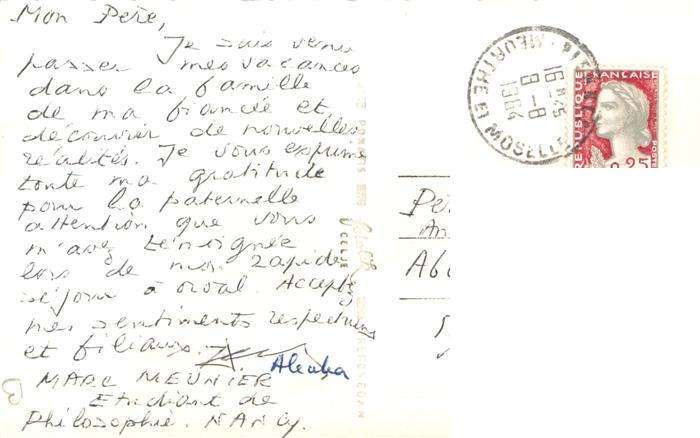 Mon Père,
Je suis venu
passer mes vacances
dans la famille
de ma fiancée et
découvrir de nouvelles
réalités. Je vous exprime
toute ma gratitude
pour la paternelle
attention que vous
m'avez témoignée
lors de mon rapide
séjour à Orval. Acceptez
mes sentiments respectueux
et filiaux.
MARC MEUNIER
Etudiant de
Philosophie. NANCY.
16 H 45
8-8
1964
MEURTHE ET MOSELLE
REPUBLIQUE FRANÇAISE
0,25
Pè
Ab